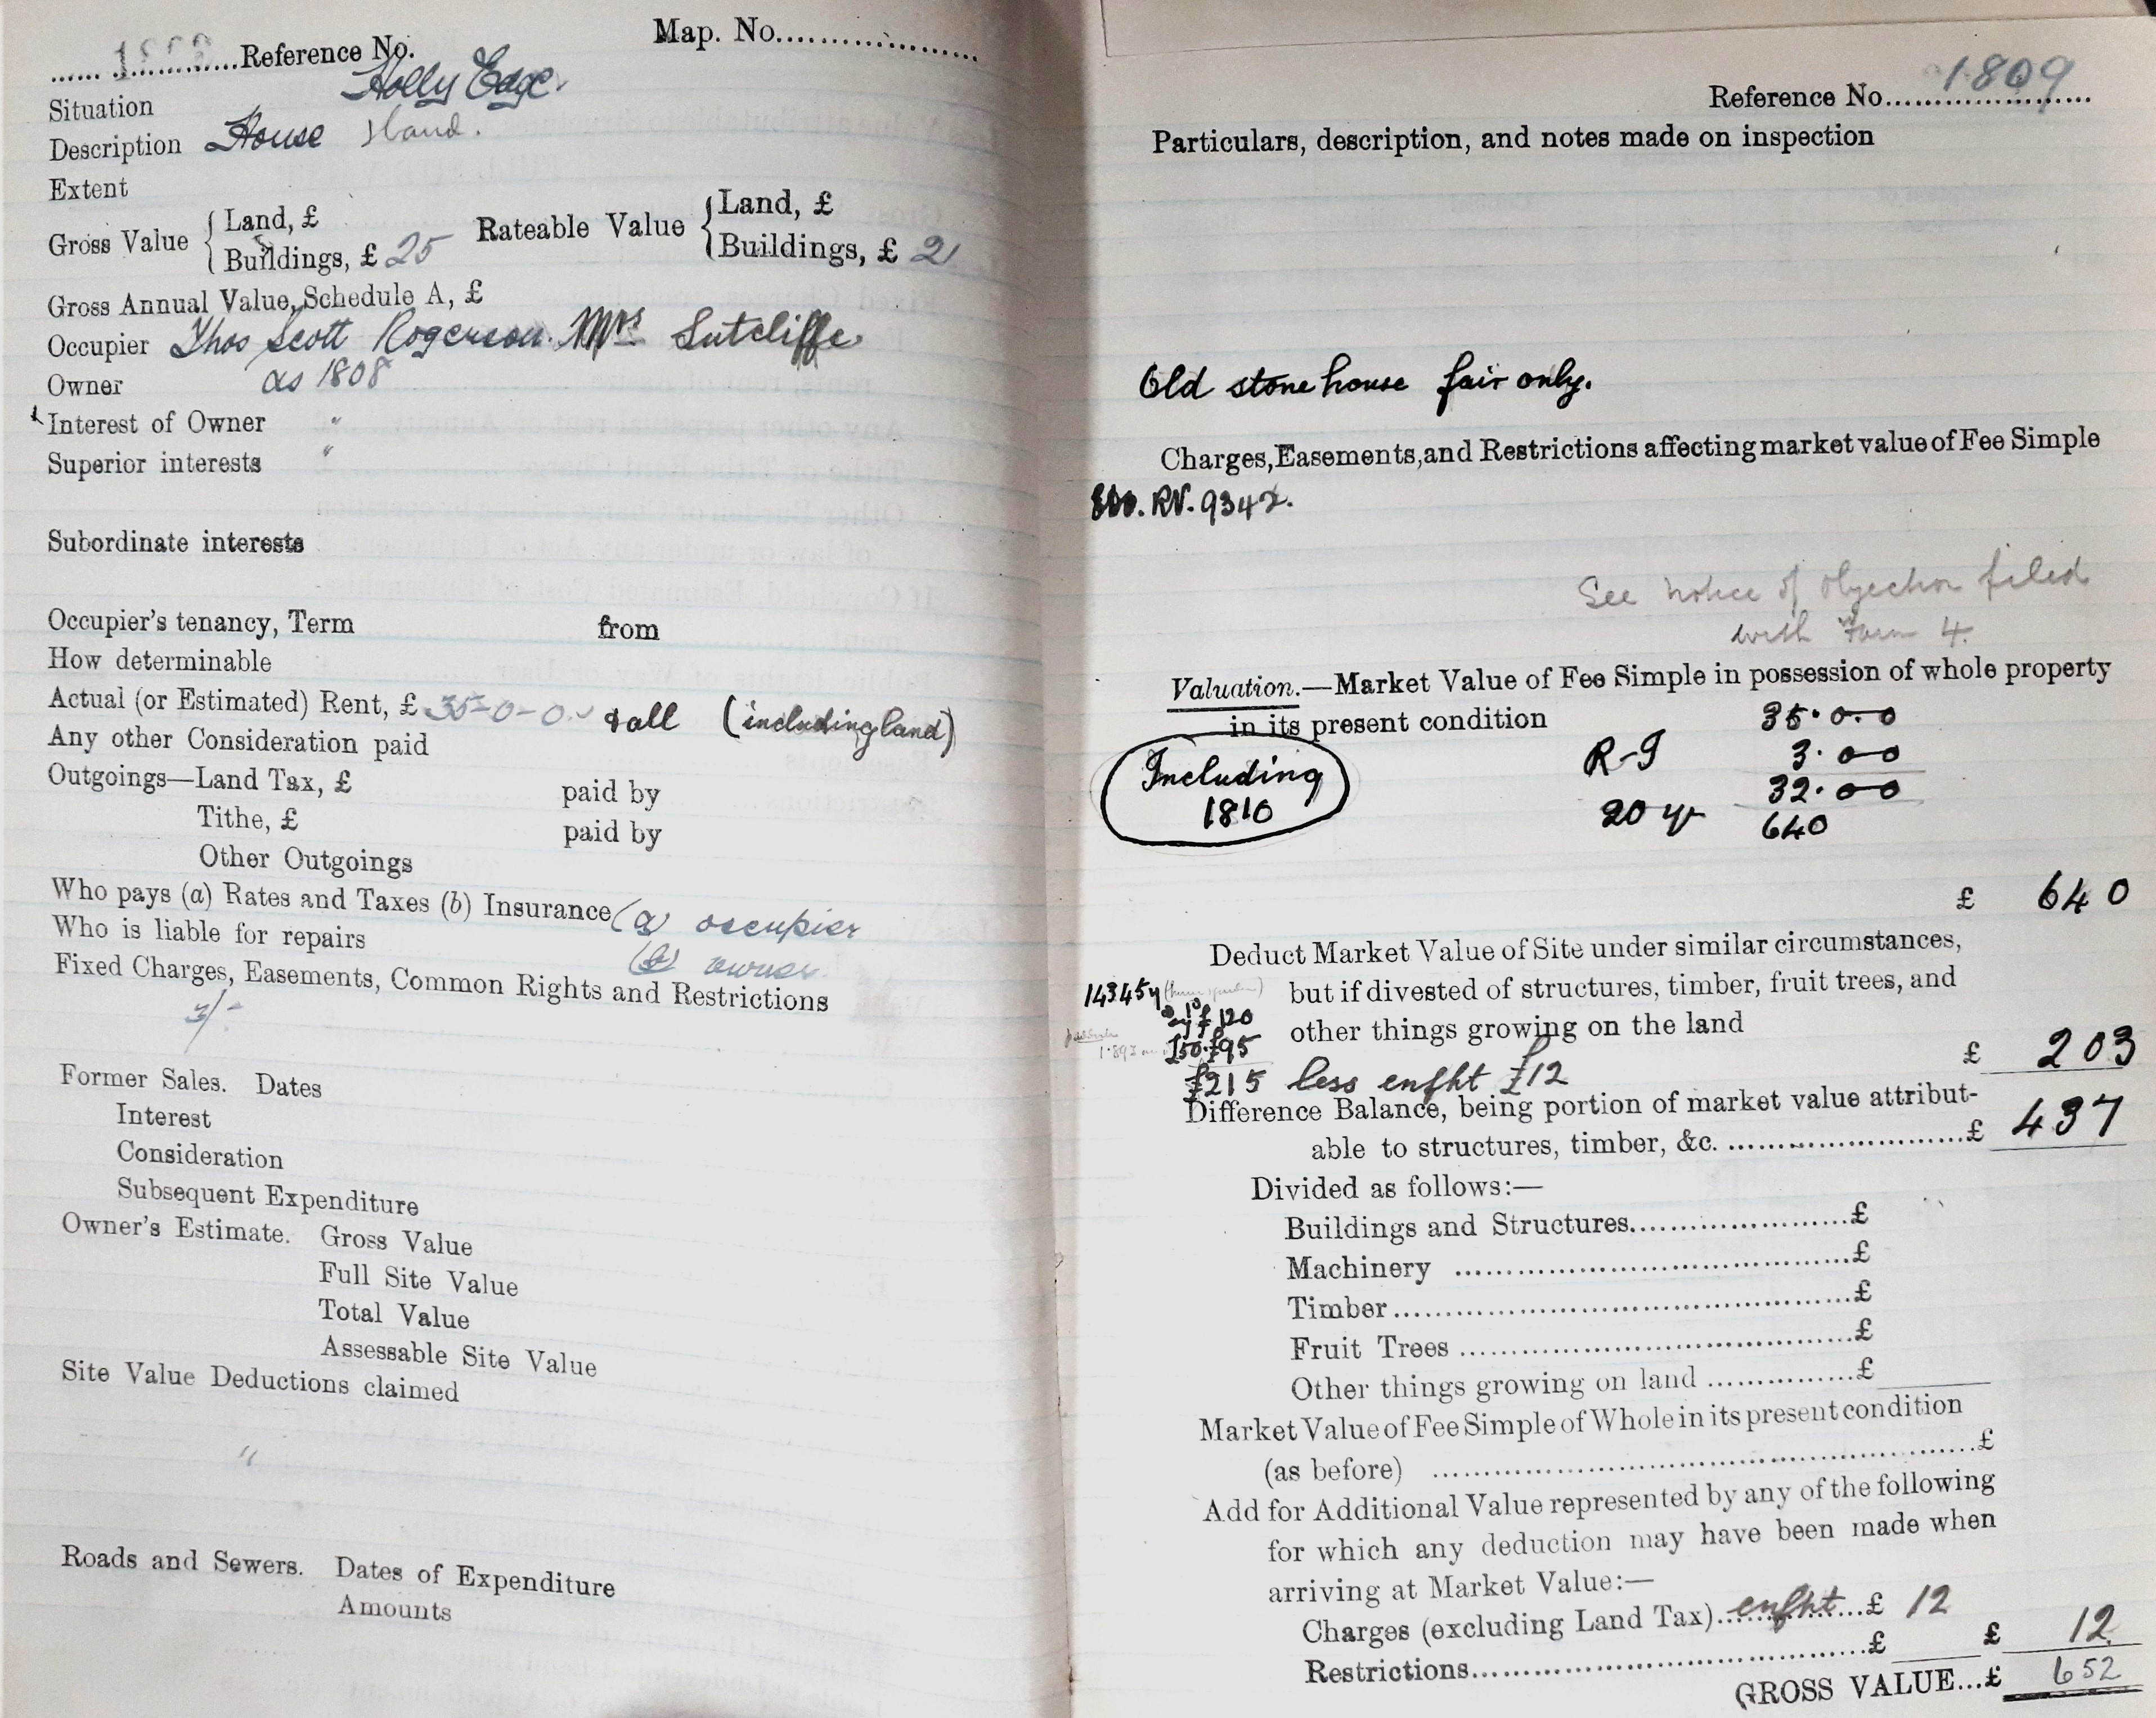 Reference No.
Map. No.
Situation Holly Edge.
Description House & land.
Extent
Gross Value { Land, £
Buildings, £ 25
Rateable Value { Land, £
Buildings, £ 2
Gross Annual Value, Schedule A, £
Occupier Thos Scott Rogerson. Mrs Sutcliffe
Owner as 1808
Interest of Owner "
Superior interests "
Subordinate interests
Occupier's tenancy, Term from
How determinable
Actual (or Estimated) Rent, £ 35-0-0. & all (including land)
Any other Consideration paid
Outgoings—Land Tax, £ paid by
Tithe, £ paid by
Other Outgoings
Who pays (a) Rates and Taxes (b) Insurance (a) occupier
Who is liable for repairs (b) owner.
Fixed Charges, Easements, Common Rights and Restrictions
3/-
Former Sales. Dates
Interest
Consideration
Subsequent Expenditure
Owner's Estimate. Gross Value
Full Site Value
Total Value
Assessable Site Value
Site Value Deductions claimed
"
Roads and Sewers. Dates of Expenditure
Amounts
Reference No. 1809
Particulars, description, and notes made on inspection
Old stone house fair only.
Charges, Easements, and Restrictions affecting market value of Fee Simple
RV. 9342.
See notice of objection filed
with Form 4.
Valuation.—Market Value of Fee Simple in possession of whole property
in its present condition 35.0.0
R-T 3.0.0
Including 32.0.0
1810 20 yr 640
£ 640
Deduct Market Value of Site under similar circumstances,
14345y but if divested of structures, timber, fruit trees, and
£120 other things growing on the land
£50. £95 £ 203
£215 less enfht £12
Difference Balance, being portion of market value attribut-
able to structures, timber, &c. £ 437
Divided as follows:—
Buildings and Structures £
Machinery £
Timber £
Fruit Trees £
Other things growing on land £
Market Value of Fee Simple of Whole in its present condition
(as before) £
Add for Additional Value represented by any of the following
for which any deduction may have been made when
arriving at Market Value:—
Charges (excluding Land Tax) enfht £ 12
Restrictions £ £ 12.
GROSS VALUE...£ 652